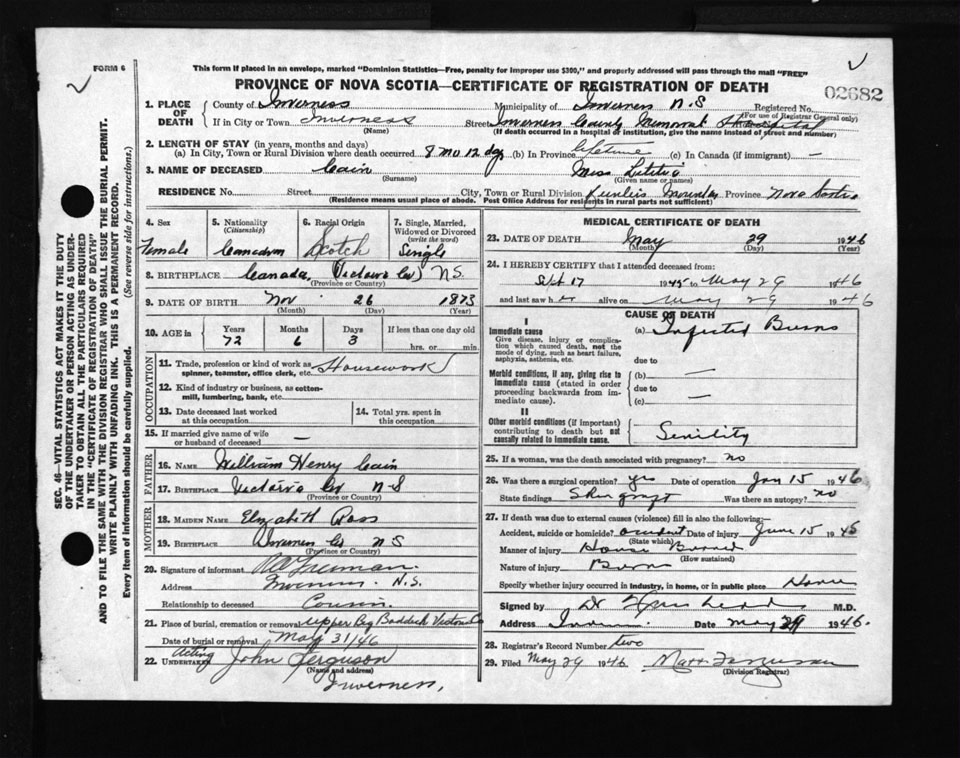 FORM 6
This form if placed in an envelope, marked "Dominion Statistics—Free, penalty for improper use $300," and properly addressed will pass through the mail "FREE"
PROVINCE OF NOVA SCOTIA—CERTIFICATE OF REGISTRATION OF DEATH
02682
1. PLACE OF DEATH
County of Inverness Municipality of Inverness N.S Registered No.
(For use of Registrar General only)
If in City or Town Inverness Street Inverness County Memorial Hospital
(Name) (If death occurred in a hospital or institution, give the name instead of street and number)
2. LENGTH OF STAY (in years, months and days)
(a) In City, Town or Rural Division where death occurred 8 mo 12 dys (b) In Province lifetime (c) In Canada (if immigrant) —
3. NAME OF DECEASED Cain Miss Letitia
(Surname) (Given name or names)
RESIDENCE No. Street City, Town or Rural Division Province Nova Scotia
(Residence means usual place of abode. Post Office Address for residents in rural parts not sufficient)
4. Sex
Female
5. Nationality (Citizenship)
Canadian
6. Racial Origin
Scotch
7. Single, Married, Widowed or Divorced (write the word)
Single
8. BIRTHPLACE Canada, (Victoria Co) N.S.
(Province or Country)
9. DATE OF BIRTH Nov 26 1873
(Month) (Day) (Year)
10. AGE in Years Months Days If less than one day old
72 6 3 hrs. or min.
OCCUPATION
11. Trade, profession or kind of work as spinner, teamster, office clerk, etc. Housework
12. Kind of industry or business, as cotton-mill, lumbering, bank, etc.
13. Date deceased last worked at this occupation
14. Total yrs. spent in this occupation
15. If married give name of wife or husband of deceased —
FATHER
16. NAME William Henry Cain
17. BIRTHPLACE Victoria Co N-S
(Province or Country)
MOTHER
18. MAIDEN NAME Elizabeth Ross
19. BIRTHPLACE Inverness Co N S
(Province or Country)
20. Signature of informant Freeman
Address Inverness N.S.
Relationship to deceased Cousin
21. Place of burial, cremation or removal Upper Big Baddeck Victoria Co
Date of burial or removal May 31/46
22. Acting UNDERTAKER John Ferguson
(Name and address)
Inverness,
MEDICAL CERTIFICATE OF DEATH
23. DATE OF DEATH May 29 1946
(Month) (Day) (Year)
24. I HEREBY CERTIFY that I attended deceased from:
Sept 17 1945 to May 29 1946
and last saw her alive on May 29 1946
CAUSE OF DEATH
I
Immediate cause
Give disease, injury or complication which caused death, not the mode of dying, such as heart failure, asphyxia, asthenia, etc.
(a) Infected Burns
due to
Morbid conditions, if any, giving rise to immediate cause (stated in order proceeding backwards from immediate cause).
(b) —
due to
(c) —
II
Other morbid conditions (if important) contributing to death but not causally related to immediate cause.
Senility
25. If a woman, was the death associated with pregnancy? no
26. Was there a surgical operation? yes Date of operation Jan 15 1946
State findings Skin graft Was there an autopsy? no
27. If death was due to external causes (violence) fill in also the following—
Accident, suicide or homicide? accident Date of injury June 15 1945
(State which)
Manner of injury House Burned
(How sustained)
Nature of injury Burns
Specify whether injury occurred in industry, in home, or in public place Home
Signed by Dr M.D.
Address Date May 29 1946.
28. Registrar's Record Number two
29. Filed May 29 1946
(Division Registrar)
SEC. 46—VITAL STATISTICS ACT MAKES IT THE DUTY
OF THE UNDERTAKER OR PERSON ACTING AS UNDER-
TAKER TO OBTAIN ALL THE PARTICULARS REQUIRED
IN THE "CERTIFICATE OF REGISTRATION OF DEATH"
AND TO FILE THE SAME WITH THE DIVISION REGISTRAR WHO SHALL ISSUE THE BURIAL PERMIT.
WRITE PLAINLY WITH UNFADING INK. THIS IS A PERMANENT RECORD.
Every item of information should be carefully supplied. (See reverse side for instructions.)